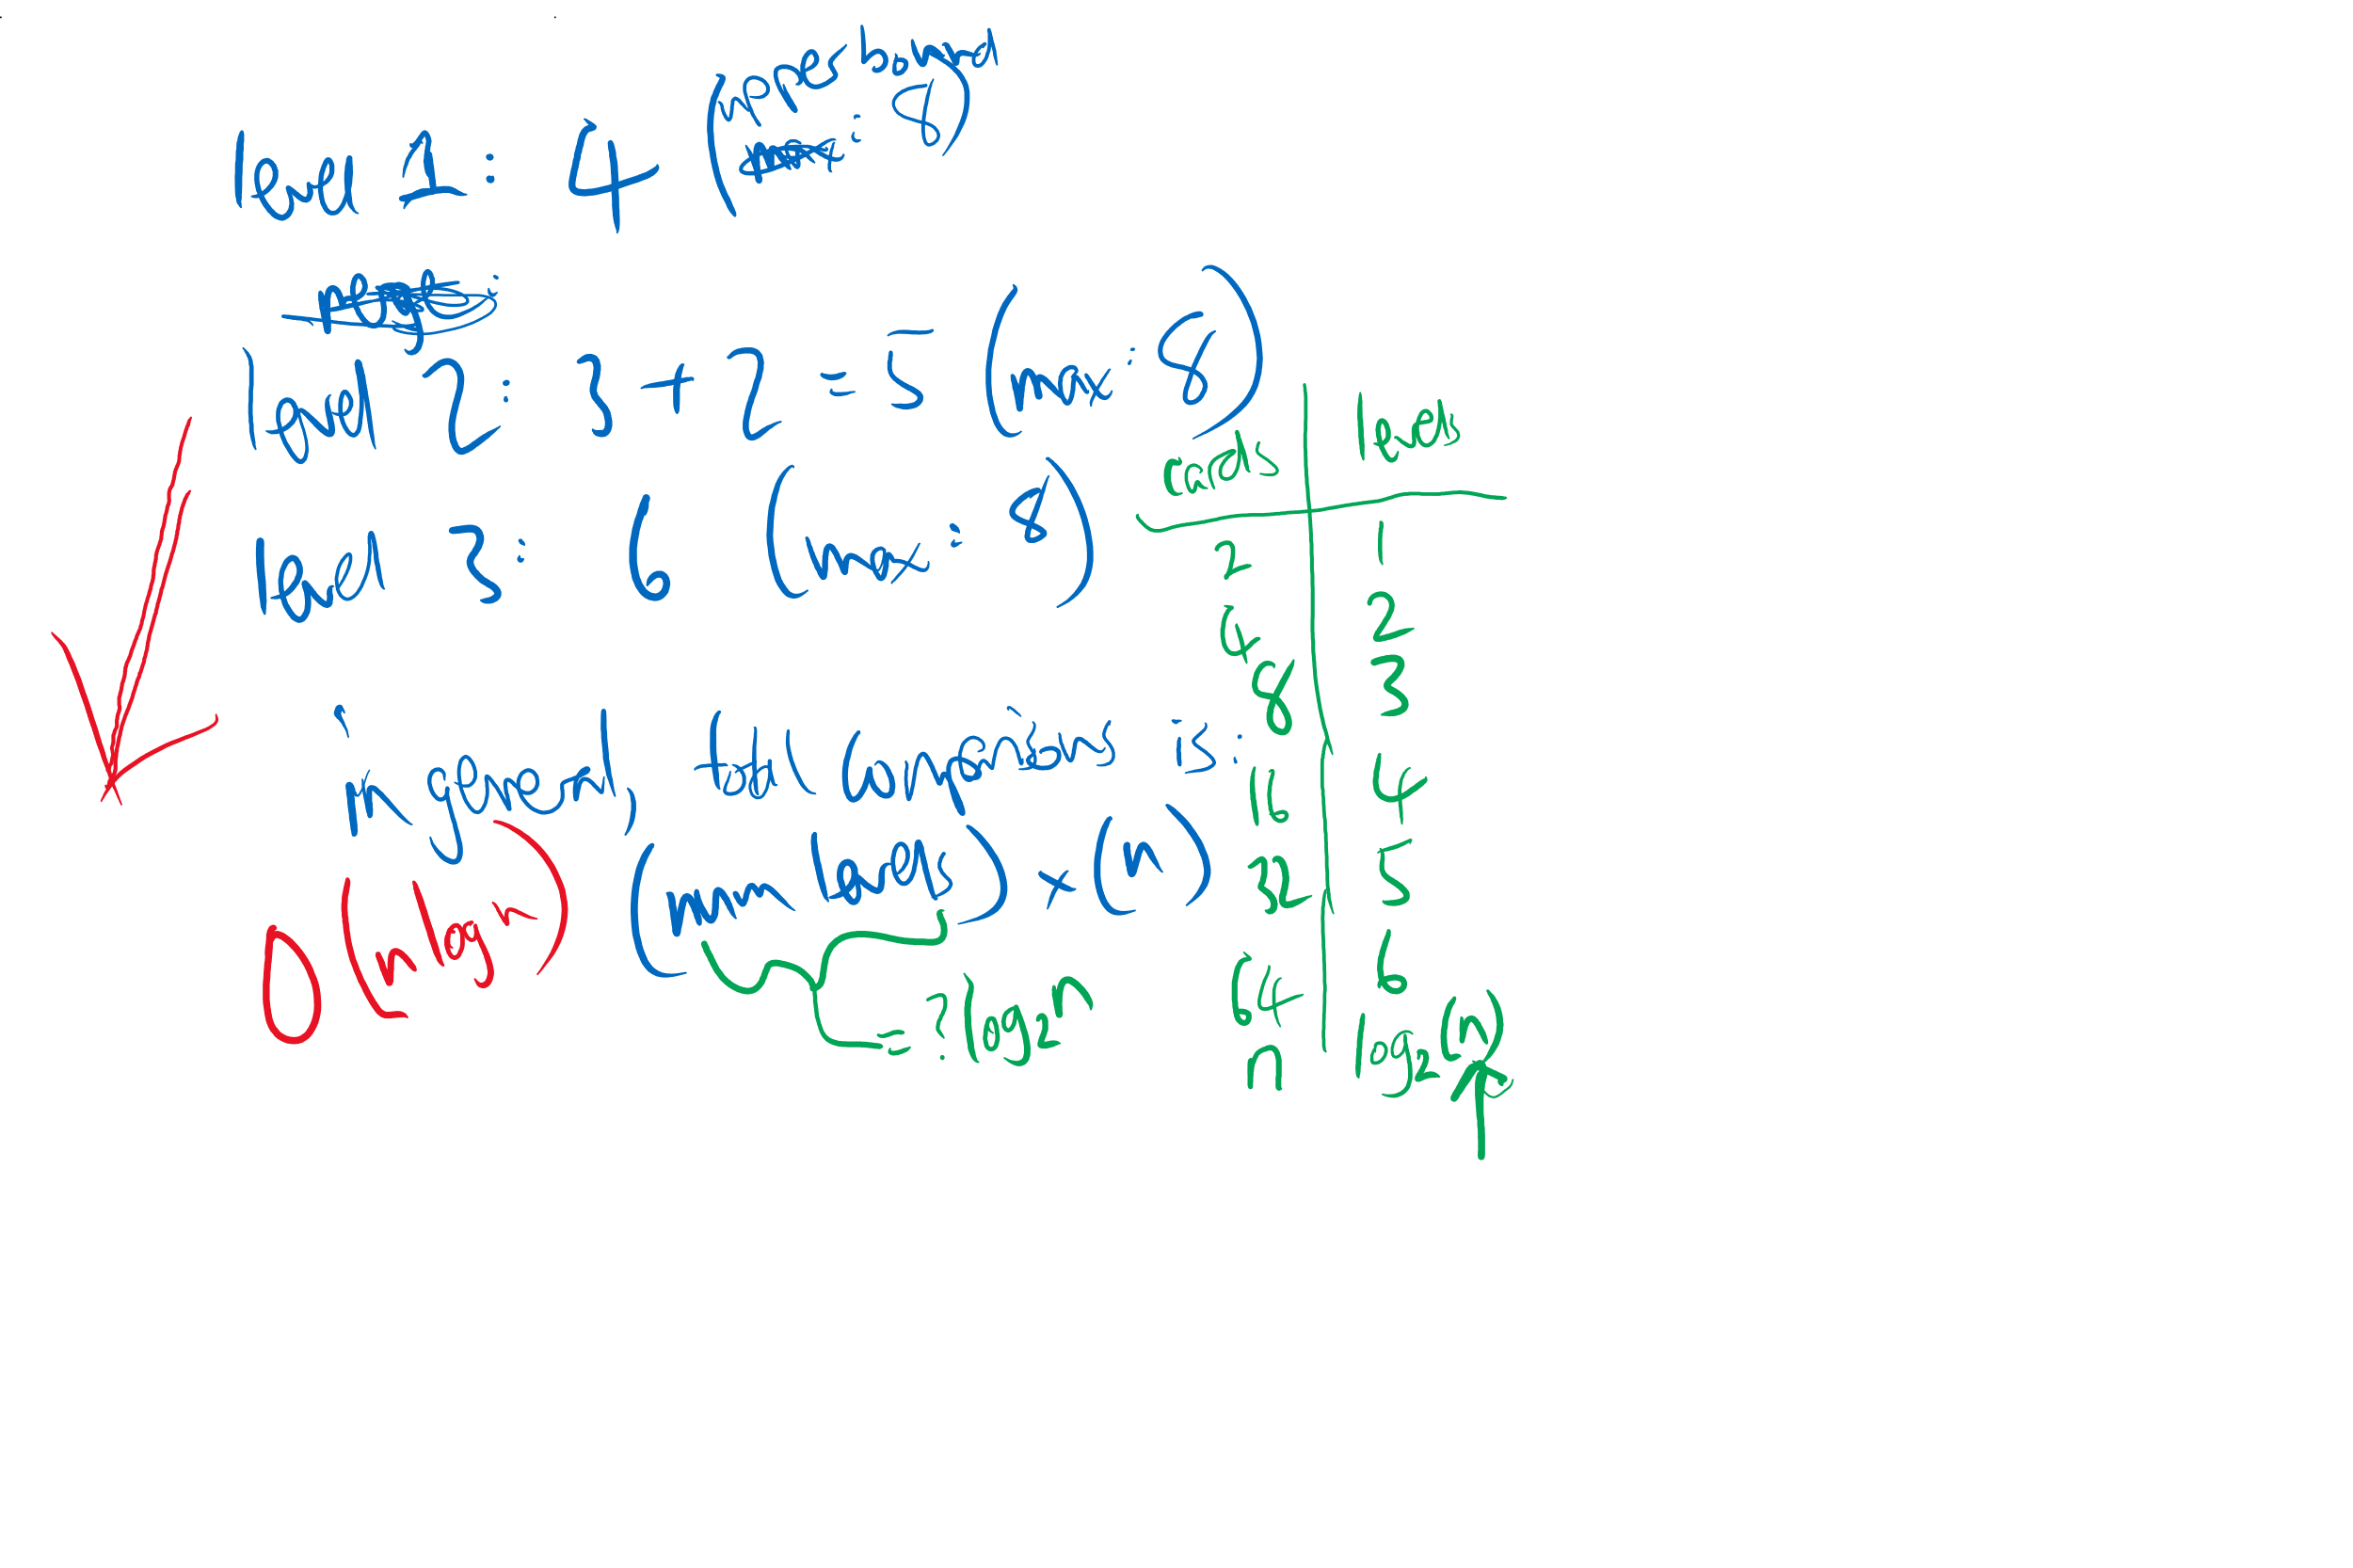 level 1: 4 (upper bound: 8)
level 2: 3 + 2 = 5 (max: 8)
level 3: 6 (max: 8)
in general, total comparisons is:
(num levels) × (n)
= ? log₂n
O(n log n)
cards levels
2 1
4 2
8 3
16 4
32 5
64 6
n log₂(n)